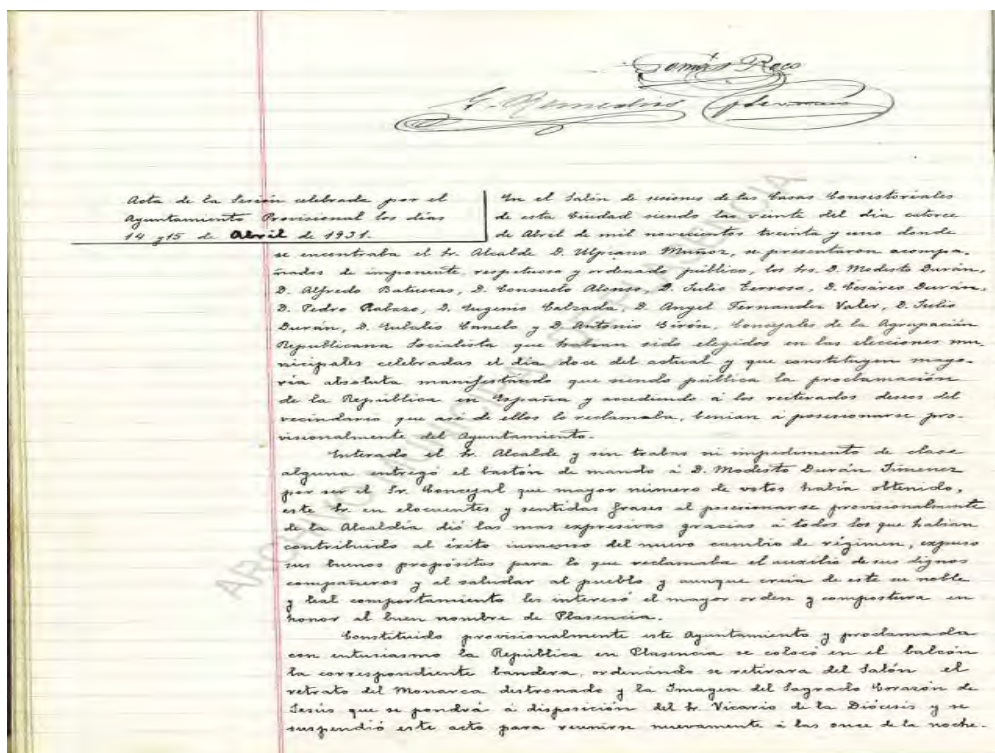 Tomás Roco
G. Remedios
Acta de la Sesión celebrada por el
Ayuntamiento Provisional los días
14 y 15 de Abril de 1931.
En el Salón de sesiones de las Casas Consistoriales
de esta Ciudad siendo las veinte del día catorce
de Abril de mil novecientos treinta y uno donde
se encontraba el Sr. Alcalde D. Ulpiano Muñoz, se presentaron acompa-
ñados de imponente, respetuoso y ordenado público, los Srs. D. Modesto Durán,
D. Alfredo Batuecas, D. Consuelo Alonso, D. Julio Cerroso, D. Cesáreo Durán,
D. Pedro Rabazo, D. Eugenio Calzada, D. Angel Fernandez Valer, D. Julio
Durán, D. Eulalio Canelo y D. Antonio Girón, Concejales de la Agrupación
Republicana Socialista que habían sido elegidos en las elecciones mu-
nicipales celebradas el día doce del actual y que constituyen mayo-
ría absoluta manifestando que siendo pública la proclamación
de la República en España y accediendo á los reiterados deseos del
vecindario que así de ellos lo reclamaba, venian á posesionarse pro-
visionalmente del Ayuntamiento.
Enterado el Sr. Alcalde y sin trabas ni impedimento de clase
alguna entregó el bastón de mando á D. Modesto Durán Jimenez
por ser el Sr. Concejal que mayor número de votos había obtenido,
este Sr. en elocuentes y sentidas frases al posesionarse provisionalmente
de la Alcaldía dió las mas expresivas gracias á todos los que habian
contribuido al éxito inmenso del nuevo cambio de régimen, expuso
sus buenos propósitos para lo que reclamaba el auxilio de sus dignos
compañeros y al saludar al pueblo y aunque creia de este su noble
y leal comportamiento les interesó el mayor orden y compostura en
honor al buen nombre de Plasencia.
Constituido provisionalmente este Ayuntamiento y proclamada
con entusiasmo la República en Plasencia se colocó en el balcón
la correspondiente bandera, ordenándo se retirara del Salón el
retrato del Monarca destronado y la Imagen del Sagrado Corazón de
Jesús que se pondrá á disposición del Sr. Vicario de la Diócesis y se
suspendió este acto para reunirse nuevamente á las once de la noche.
ARCHIVO MUNICIPAL PLASENCIA